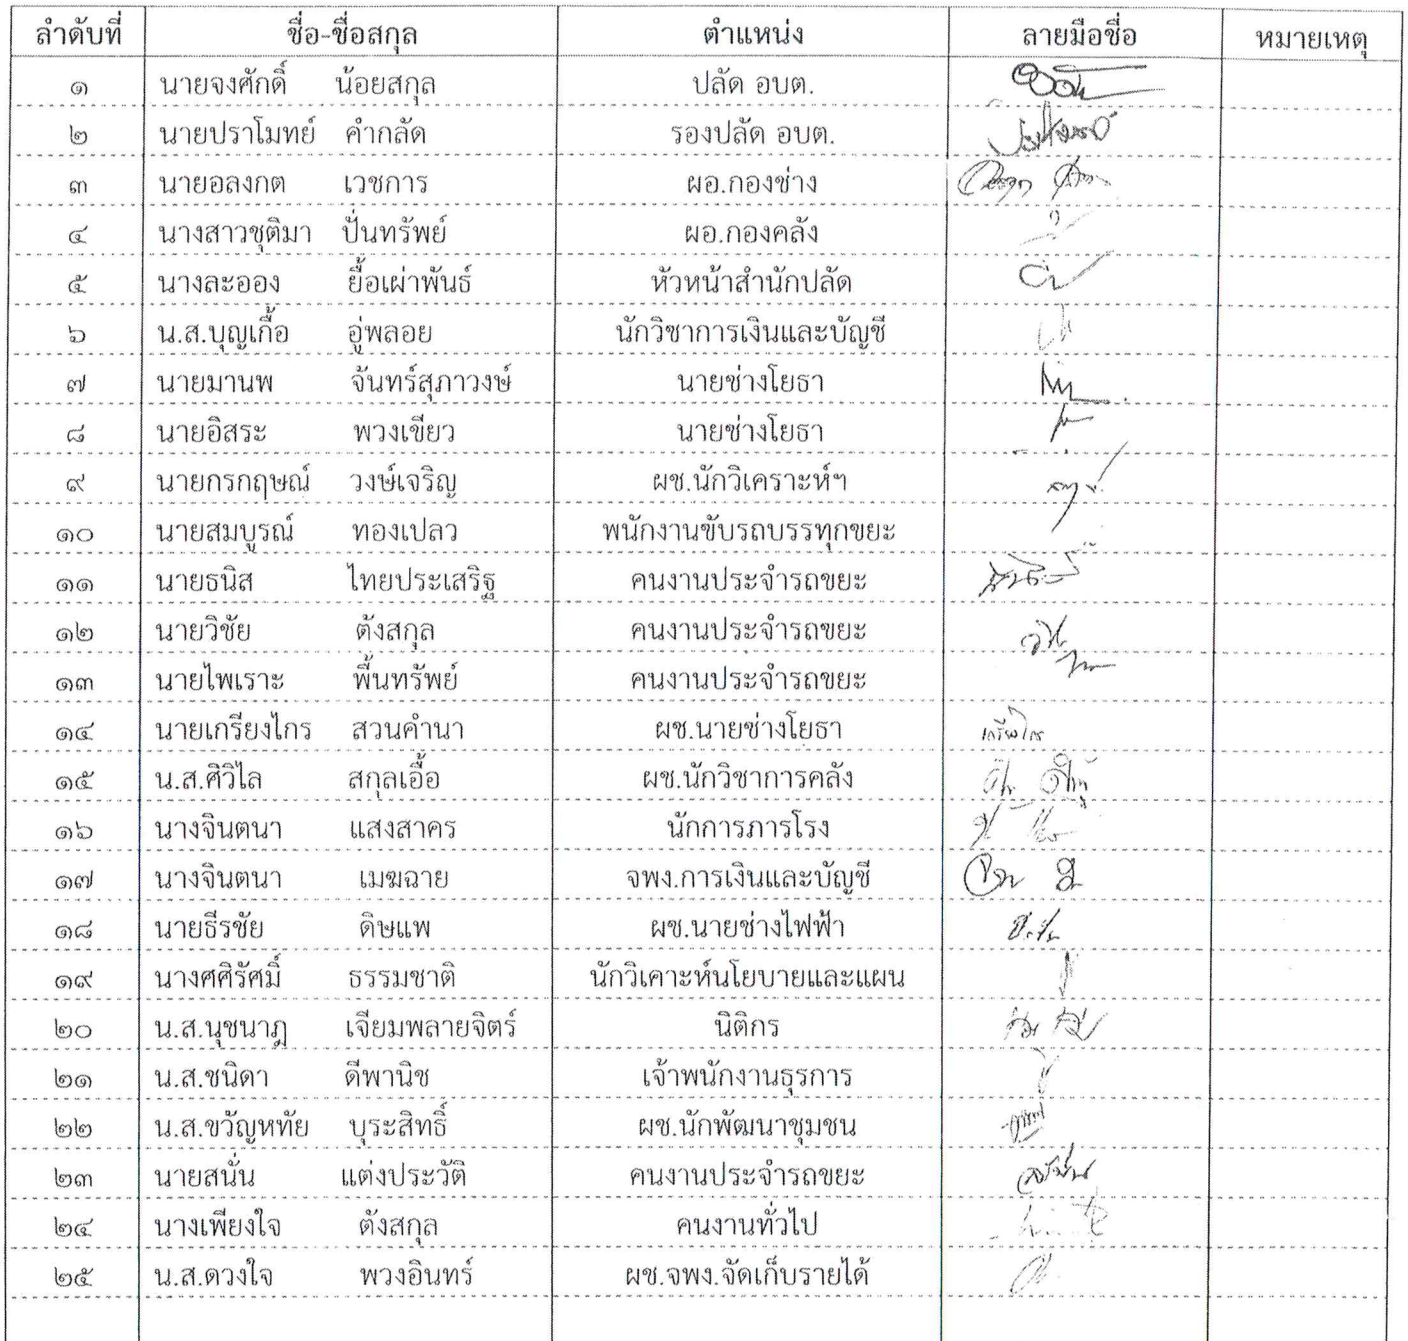 ลำดับที่ ชื่อ-ชื่อสกุล ตำแหน่ง ลายมือชื่อ หมายเหตุ
๑ นายจงศักดิ์ น้อยสกุล ปลัด อบต.
๒ นายปราโมทย์ คำกลัด รองปลัด อบต.
๓ นายอลงกต เวชการ ผอ.กองช่าง
๔ นางสาวชุติมา ปั่นทรัพย์ ผอ.กองคลัง
๕ นางละออง ยื้อเผ่าพันธ์ หัวหน้าสำนักปลัด
๖ น.ส.บุญเกื้อ อู่พลอย นักวิชาการเงินและบัญชี
๗ นายมานพ จันทร์สุภาวงษ์ นายช่างโยธา
๘ นายอิสระ พวงเขียว นายช่างโยธา
๙ นายกรกฤษณ์ วงษ์เจริญ ผช.นักวิเคราะห์ฯ
๑๐ นายสมบูรณ์ ทองเปลว พนักงานขับรถบรรทุกขยะ
๑๑ นายธนิส ไทยประเสริฐ คนงานประจำรถขยะ
๑๒ นายวิชัย ตังสกุล คนงานประจำรถขยะ
๑๓ นายไพเราะ พื้นทรัพย์ คนงานประจำรถขยะ
๑๔ นายเกรียงไกร สวนคำนา ผช.นายช่างโยธา เกรียงไกร
๑๕ น.ส.ศิวิไล สกุลเอื้อ ผช.นักวิชาการคลัง
๑๖ นางจินตนา แสงสาคร นักการภารโรง
๑๗ นางจินตนา เมฆฉาย จพง.การเงินและบัญชี
๑๘ นายธีรชัย ดิษแพ ผช.นายช่างไฟฟ้า
๑๙ นางศศิรัศมิ์ ธรรมชาติ นักวิเคาะห์นโยบายและแผน
๒๐ น.ส.นุชนาฎ เจียมพลายจิตร์ นิติกร
๒๑ น.ส.ชนิดา ดีพานิช เจ้าพนักงานธุรการ
๒๒ น.ส.ขวัญหทัย บุระสิทธิ์ ผช.นักพัฒนาชุมชน
๒๓ นายสนั่น แต่งประวัติ คนงานประจำรถขยะ สนั่น
๒๔ นางเพียงใจ ตังสกุล คนงานทั่วไป
๒๕ น.ส.ดวงใจ พวงอินทร์ ผช.จพง.จัดเก็บรายได้